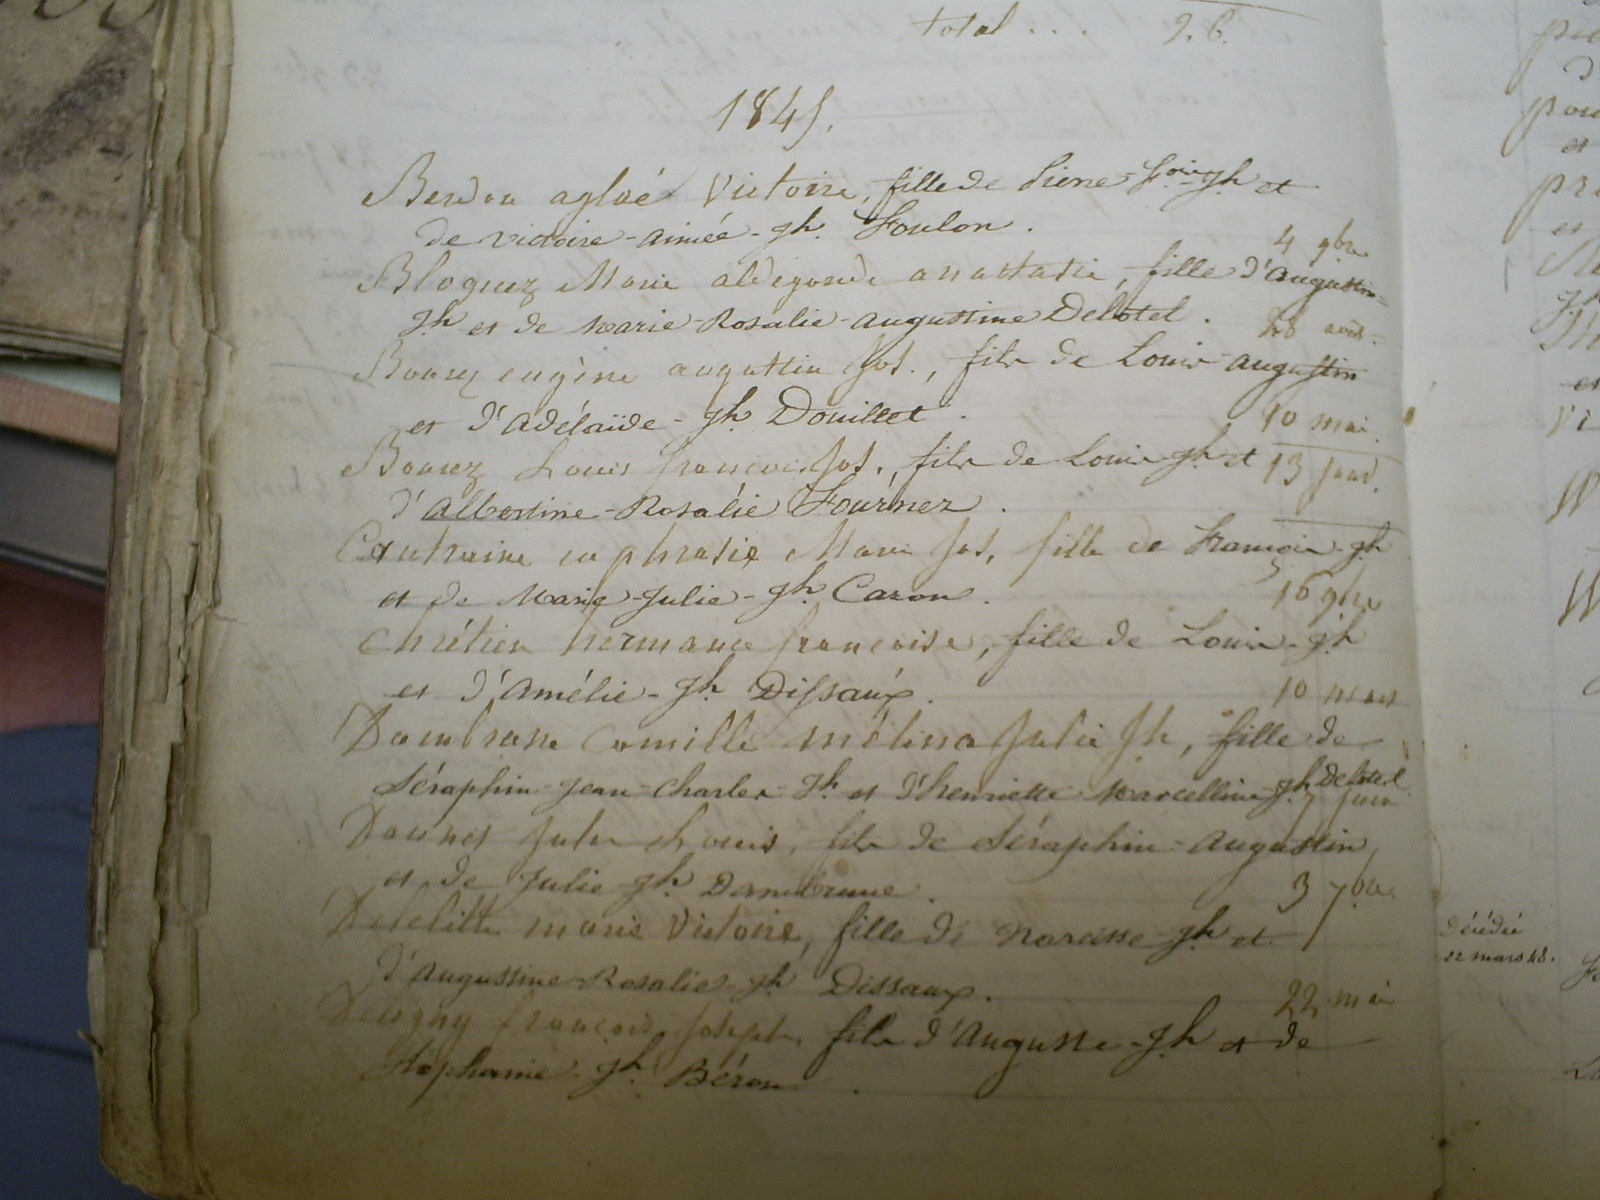 total . . . 26.
1845.
aglaé Victoire, fille de Pierre-f.ois-jh et
de victoire-aimée-jh. Foulon.
4 9bre
Bloquez Marie aldegonde anastasie, fille d'augustin-
jh et de marie-Rosalie-augustine Delotel.
28 août.
Bourez eugène augustin Jos., fils de Louis-augustin
et d'adélaïde-jh Douillet.
10 mai
Bourez Louis françois Jos., fils de Louis-jh et
13 janv.
d'albertine-Rosalie Fournez.
Contraine euphrasie Marie Jos. fille de François-jh
et de Marie-Julie-jh Caron.
16 9bre
chrétien hermance françoise, fille de Louis-jh
et d'amélie-jh Dissaux.
10 mars
Dambrune Camille mélina Julie Jh, fille de
Séraphin-jean-charles-Jh et d'henriette Marcelline-jh Delotel.
7 juin
Jules Louis, fils de Séraphin-augustin
et de Julie-jh Dambrune.
3 7bre.
marie Victoire, fille de Narcisse-jh et
d'augustine-Rosalie-jh Dissaux.
22 mai
françois Joseph, fils d'auguste-jh et de
Stéphanie-jh Béron.
décédée
22 mars 48.